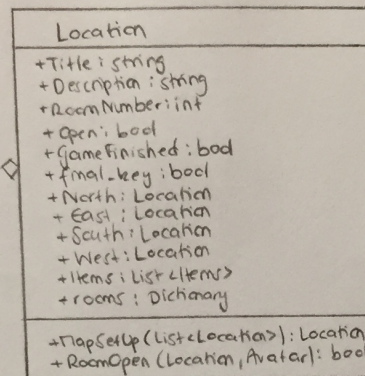 Location
+Title : string
+Description : string
+RoomNumber : int
+Open : bool
+GameFinished : bool
+final_key : bool
+North : Location
+East : Location
+South : Location
+West : Location
+Items : List <Items>
+rooms : Dictionary
+MapSetUp (List<Location>) : Location
+RoomOpen (Location, Avatar) : bool